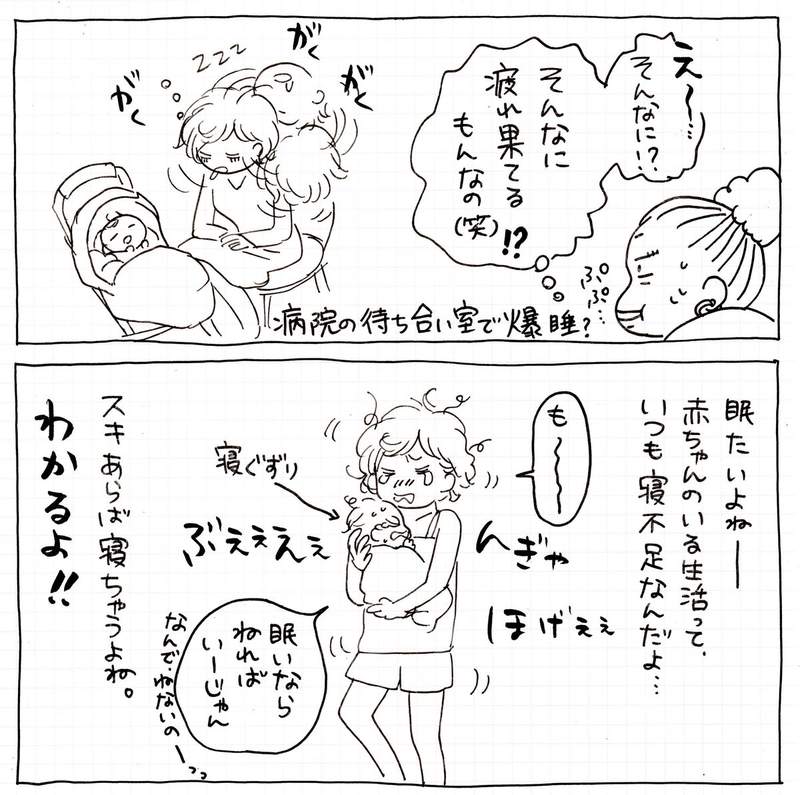 え〜…
そんなに!?
そんなに
疲れ果てる
もんなの
(笑)!?
ぷぷ…
がく
がく
がく
zzz
病院の待ち合い室で爆睡?
眠たいよねー
赤ちゃんのいる生活って、
いつも寝不足なんだよ…
も〜〜〜
んぎゃ
ほげぇぇ
寝ぐずり
ぶぇぇぇぇ
眠いなら
ねれば
いーじゃん
なんで、ねないのーっっ
スキあらば寝ちゃうよね。
わかるよ!!